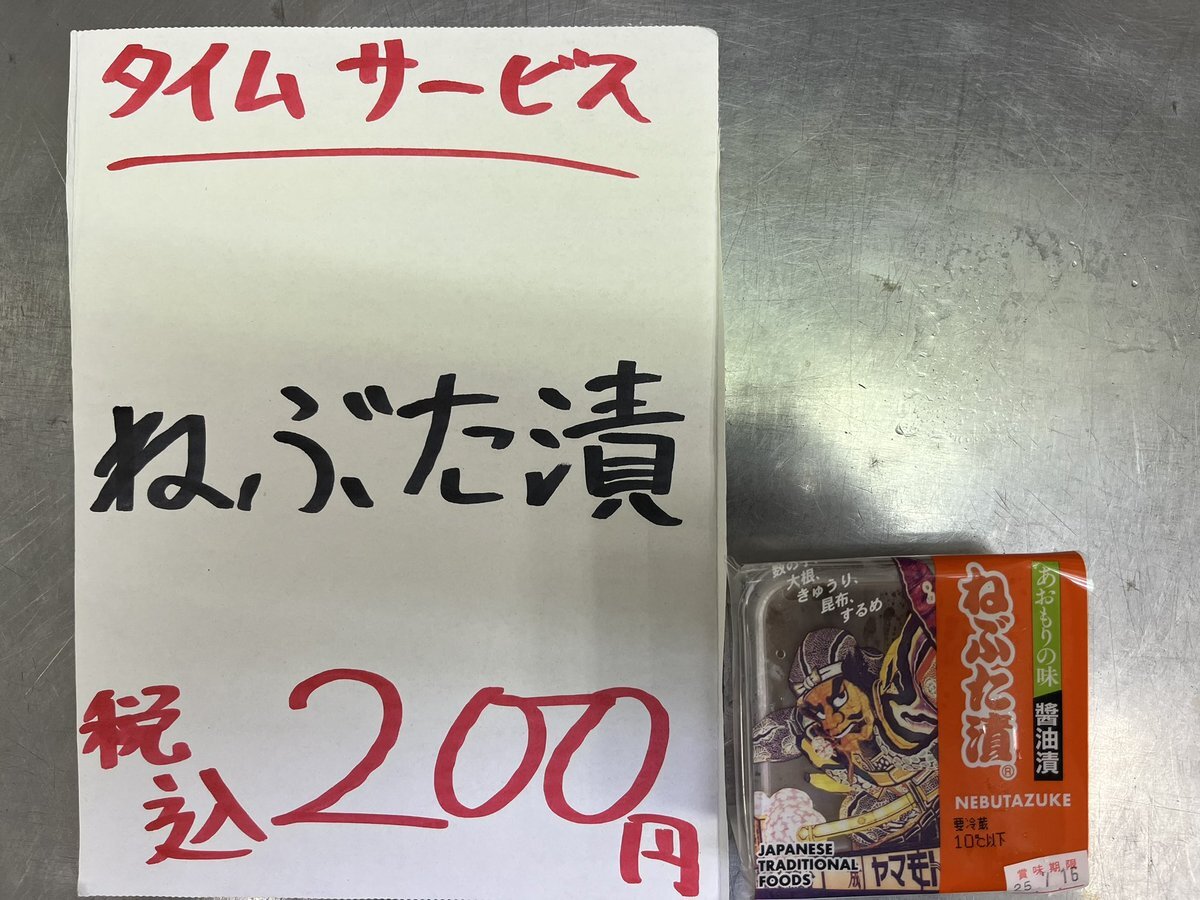 タイムサービス
ねぶた漬
税込200円
大根、
きゅうり、
昆布、
するめ
あおもりの味
醤油漬
ねぶた漬®
NEBUTAZUKE
要冷蔵
10℃以下
賞味期限
25. 1.16
JAPANESE
TRADITIONAL
FOODS
ヤマモト